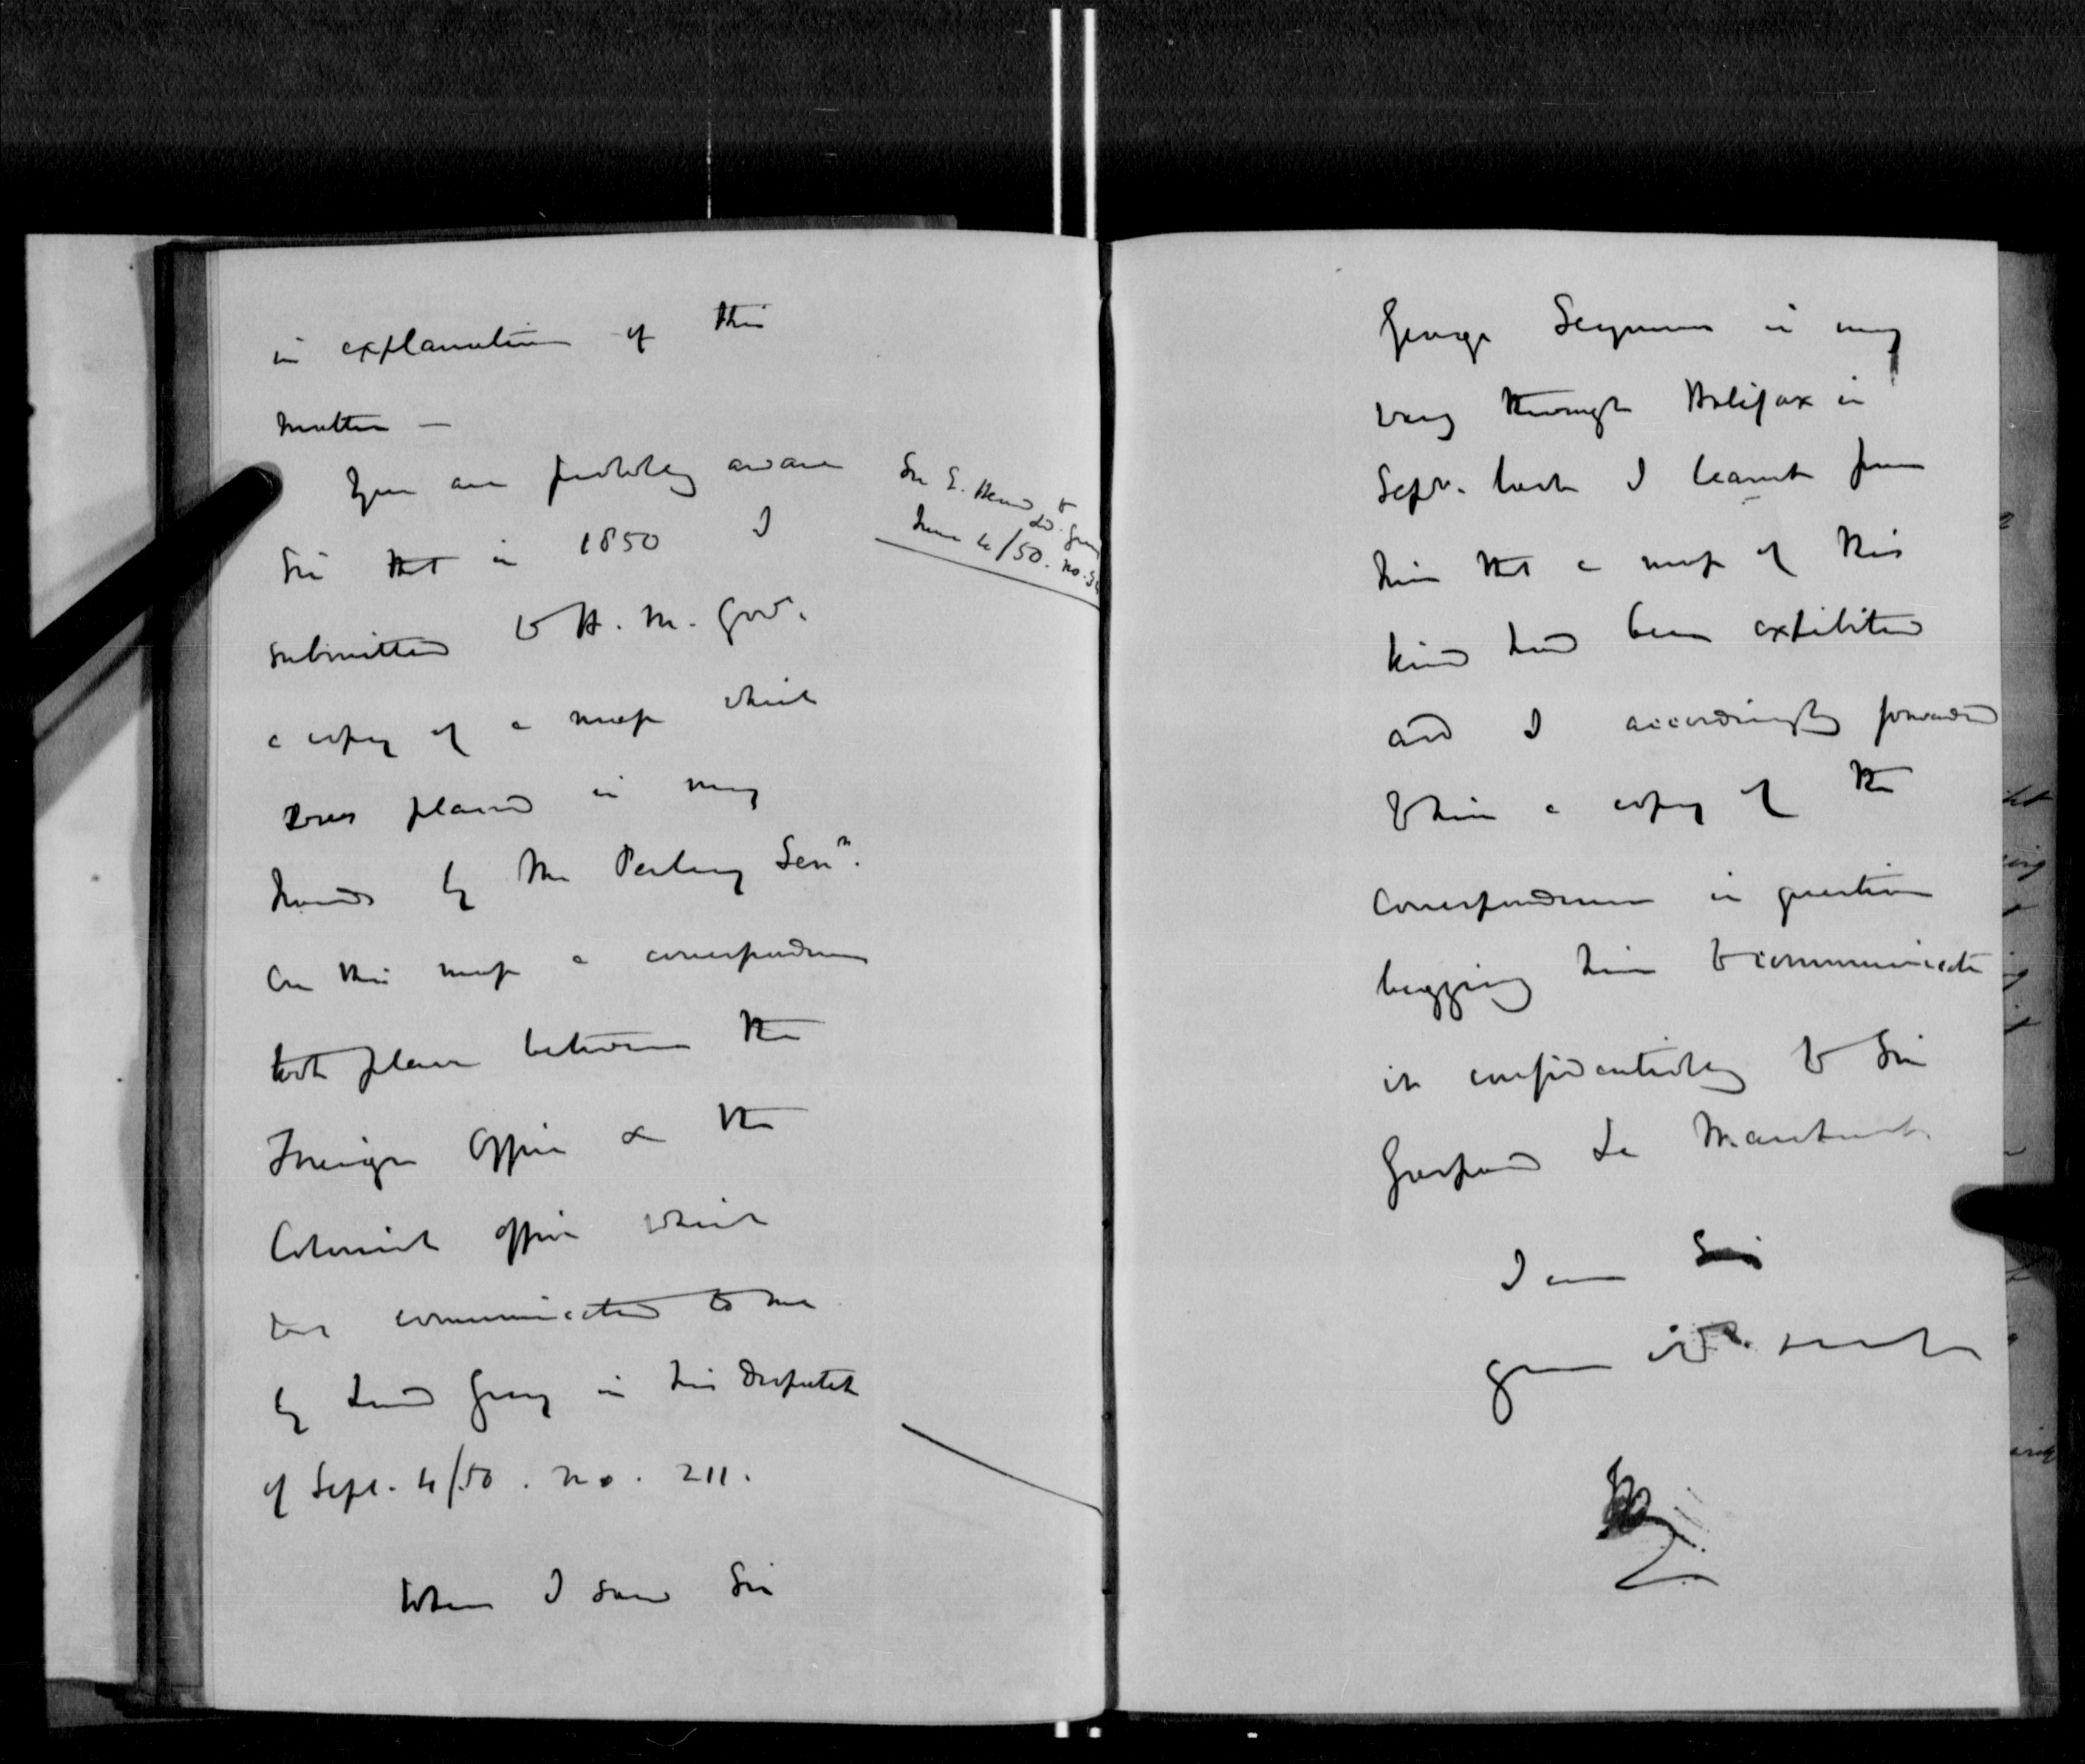 in explanation of this
matter —
You are probably aware
Sir that in 1850 I
submitted to H. M. Govt.
a copy of a map which
was placed in my
hands by Mr Perley Senr.
On this map a correspondence
took place between the
Foreign Office & the
Colonial Office which
was communicated to me
by Lord Grey in his Despatch
of Sept. 4/50. no. 211.
When I saw Sir
Sir E. Head to
Ld. Grey
June 4/50. no.
George Seymour in my
way through Halifax in
Sepr. last I learnt from
him that a map of this
kind had been exhibited
and I accordingly forwarded
to him a copy of the
Correspondence in question
begging him to communicate
it confidentially to Sir
Gaspard Le Marchant.
I am Sir
your obt. servt